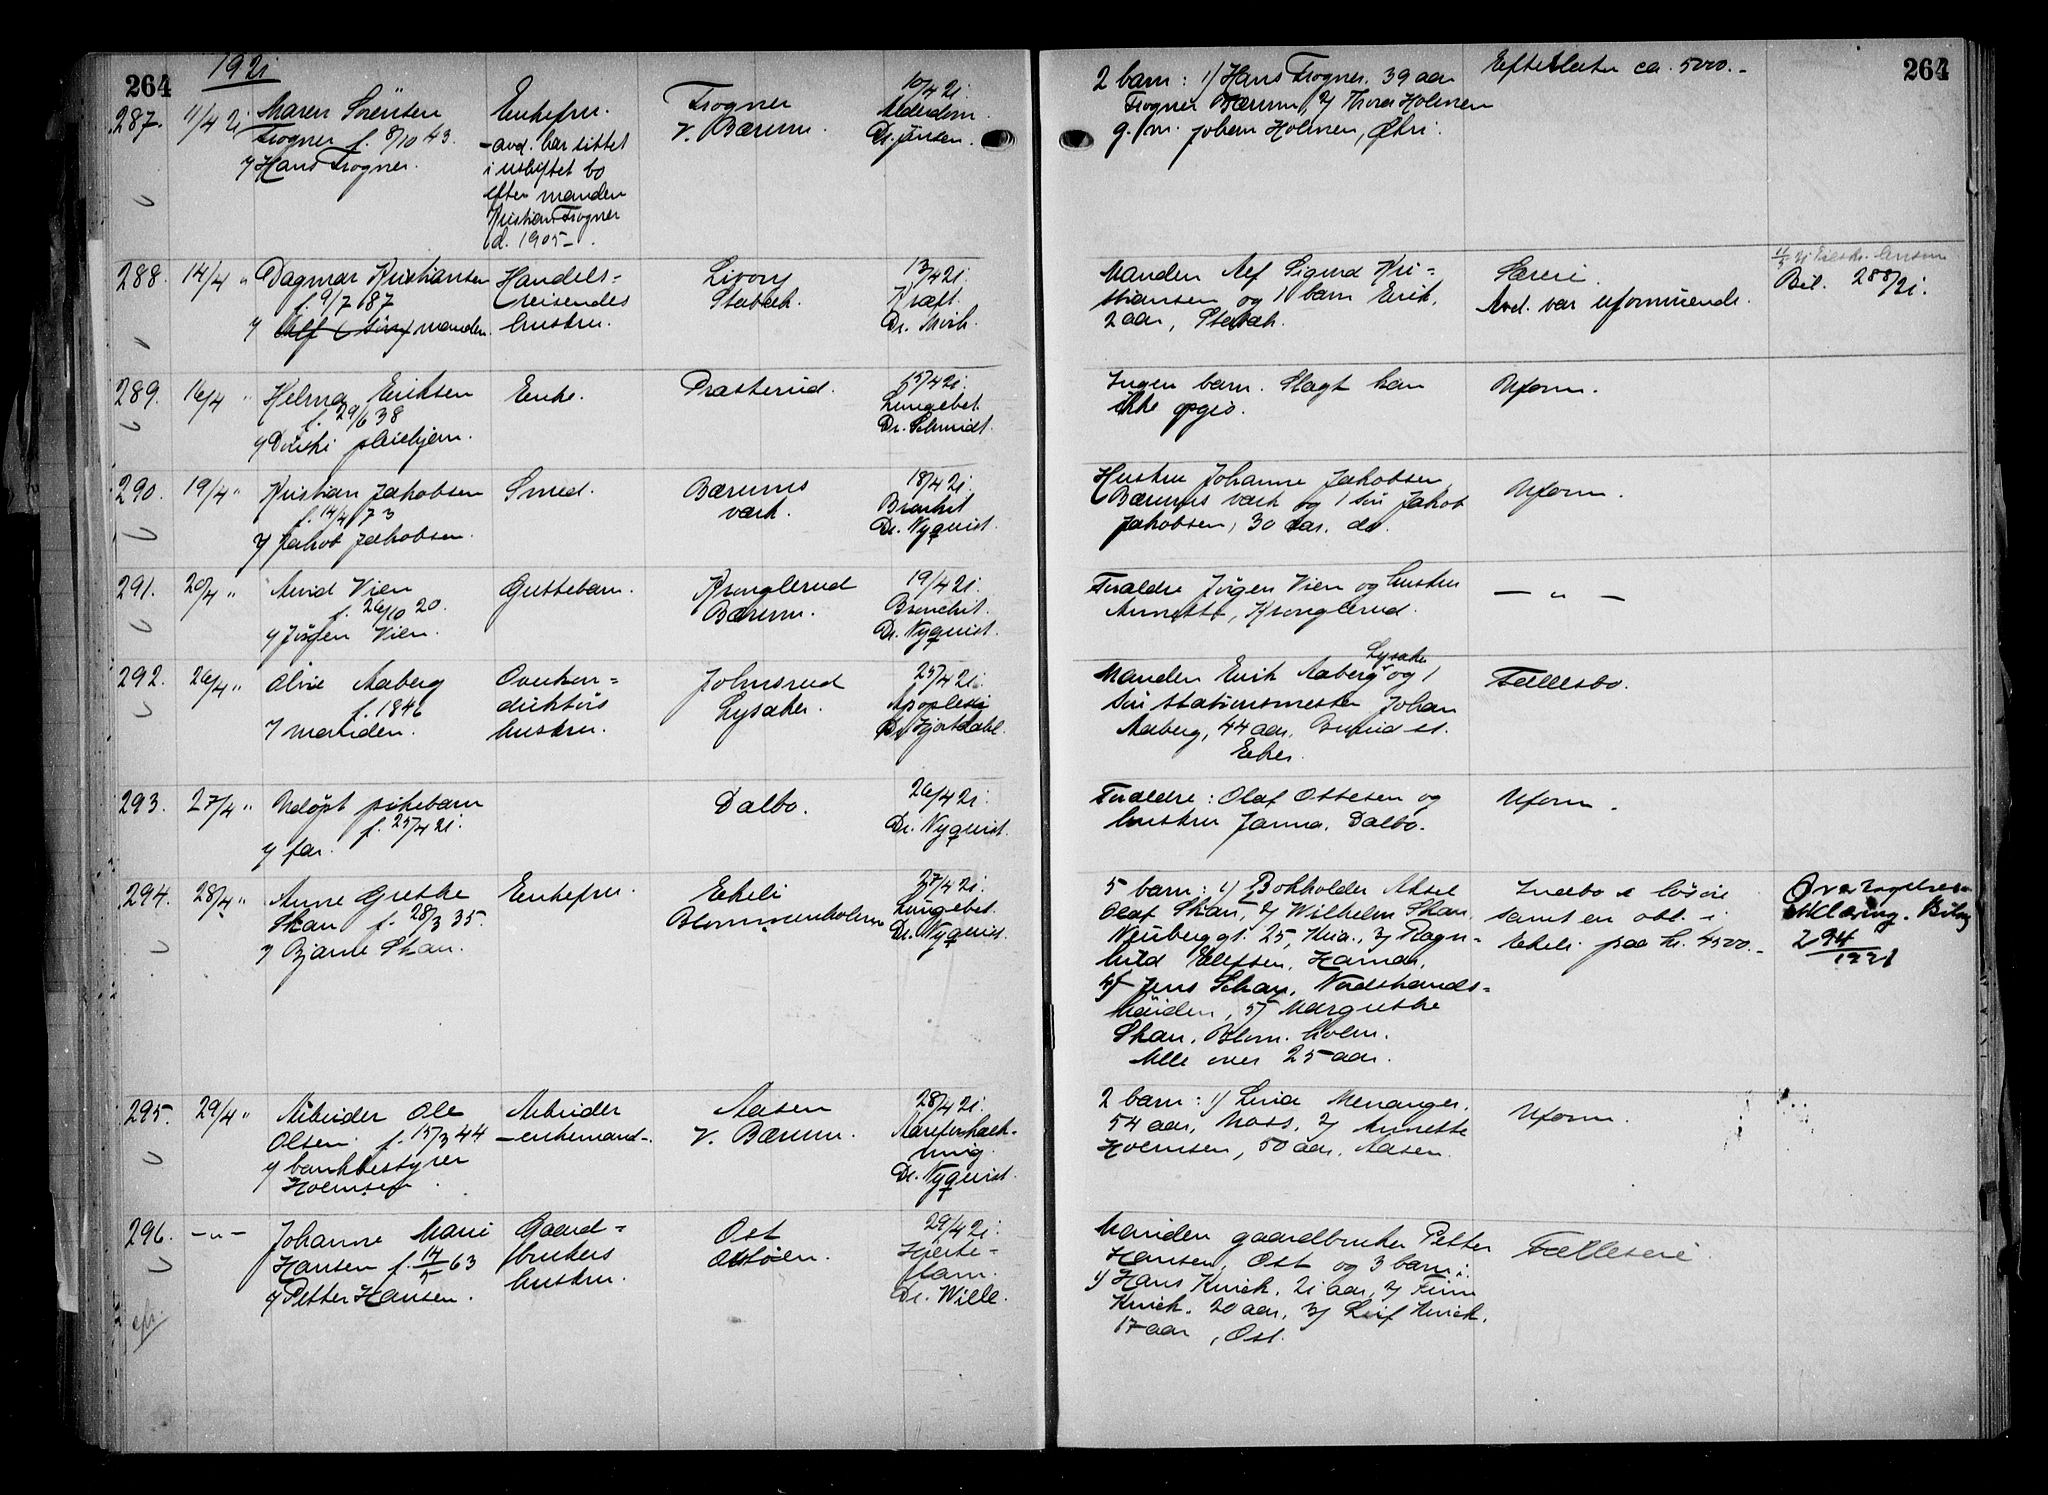 264
1921
287. 11/4 21 Maren Sørensen
Frogner f. 8/10 43
v/ Hans Frogner.
Enkefru.
– avd. har sittet
i uskiftet bo
efter manden
Kristian Frogner
d. 1905 –.
Frogner
V. Bærum.
10/4 21.
Alderdom.
Dr. Jensen.
288. 14/4 " Dagmar Kristiansen
f. 9/7 87
v/ manden.
Handels=
reisendes
hustru.
Stabæk.
13/4 21.
Kræft.
Dr.
289. 16/4 " Helma Eriksen
f. 29/6 38
v/
Enke.
Præsterud.
15/4 21.
Lungebet.
Dr. Schmidt.
290. 19/4 " Kristian Jakobsen
f. 14/4 73
v/ Jakob Jakobsen.
Smed.
Bærums
værk.
18/4 21.
Bronchit
Dr. Nyquist.
291. 20/4 " Arvid Vien
f. 26/10 20.
v/ Jørgen Vien.
Guttebarn.
Kronglerud
Bærum.
19/4 21.
Bronchit.
Dr. Nyquist.
292. 26/4 " Olive Aaberg
f. 1846
v/ manden.
Overkon=
duktørs
hustru.
Johnsrud
Lysaker.
25/4 21.
Apoplexi
Dr. Hjortdahl.
293. 27/4 " Udøpt pikebarn
f. 25/4 21.
v/ far.
Dalbo.
26/4 21.
Dr. Nyquist.
294. 28/4 " Anne Grethe
Skau f. 28/3 35.
v/ Bjarne Skau.
Enkefru.
Ekeli
Blommenholm
27/4 21.
Lungebet.
Dr. Nyquist.
295. 29/4 " Arbeider Ole
Olsen f. 15/3 44
v/ bankbestyrer
Holmsen.
Arbeider
– enkemand –.
Aasen
V. Bærum.
28/4 21.
Aareforkalk-
ning.
Dr. Nyquist.
296. – " – Johanne Marie
Hansen f. 14/5 63
v/ Petter Hansen.
Gaard=
brukers
hustru.
Ost
Ostøen.
29/4 21.
Hjerte=
lam.
Dr. Wille.
264
2 barn: 1) Hans Frogner, 39 aar
Frogner Bærum, 2) Thora Holmen
g. m. Johan Holmen, Øhri.
Efterlater ca. 5000.–
Manden Alf Sigurd Kri=
stiansen og 1 barn Erik,
2 aar, Stabæk.
Særeie.
Avd. var uformuende.
Bil. 288/21.
Ingen barn. Slagt kan
ikke opgis.
Uform.
Hustru Johanne Jakobsen,
Bærums værk og 1 søn Jakob
Jakobsen, 30 aar, do.
Uform.
Foraldre Jørgen Vien og hustru
Annette, Kronglerud.
– " –
Manden Erik Aaberg Lysaker og 1
søn stationsmester Johan
Aaberg, 44 aar, st.
Eker.
Fællesbo.
Foraldre: Olaf Ottesen og
hustru Janna, Dalbo.
Uform.
5 barn: 1) Bokholder Aksel
Olaf Skau, 2) Wilhelm Skau,
Neuberggt. 25, Kria., 3) Ragn=
hild Ellefsen, Hamar,
4) Jens Skau, Nordstrands=
høiden, 5) Margrethe
Skau, Blom. holm.
Alle over 25 aar.
Indbo & løsøre
samt en obl. i
Ekeli paa kr. 4500.–
Overtagelses
erklæring. Bilag
294/1921
2 barn: 1) Lina Menanger,
54 aar, Moss, 2) Annette
Holmsen, 50 aar, Aasen.
Uform.
Manden gaardbruker Petter
Hansen, Ost og 3 barn:
1) Hans Henrik, 21 aar, 2) Finn
Henrik, 20 aar, 3) Leif Henrik,
17 aar, Ost.
Fælleseie